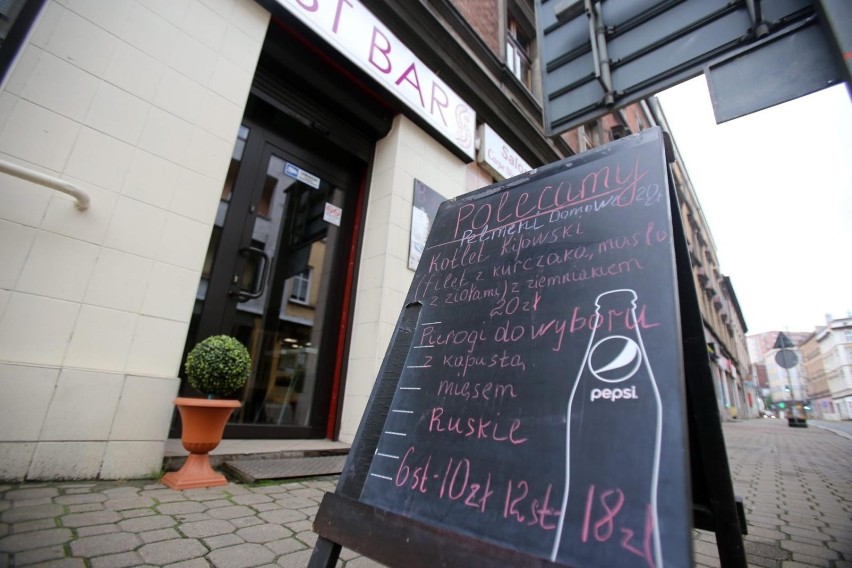 ST BAR
Salo
Polecamy
Pelmeni Domowe 20,
Kotlet Kijowski
(filet z kurczaka, masło
z ziołami) z ziemniakiem
20zł
Pierogi do wyboru
z kapustą
mięsem
Ruskie
6st-10zł 12st-18zł
pepsi